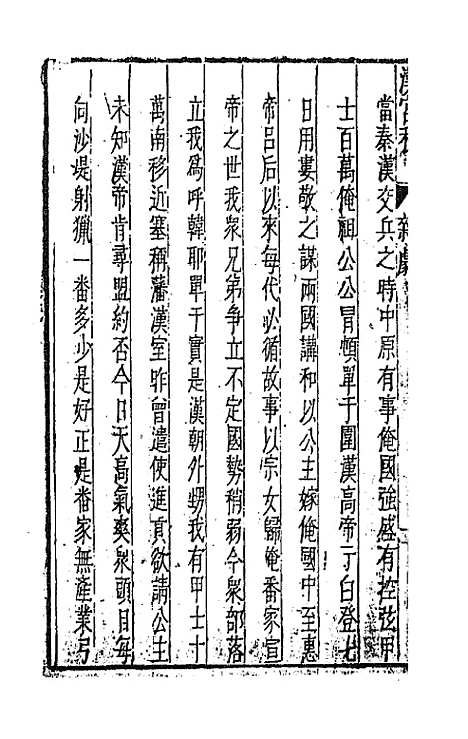 漢宮秋 雜劇
當秦漢交兵之時中原有事俺國強盛有控弦甲
士百萬俺祖公公冒頓單于圍漢高帝于白登七
日用婁敬之謀兩國講和以公主嫁俺國中至惠
帝呂后以來每代必循故事以宗女歸俺番家宣
帝之世我眾兄弟爭立不定國勢稍弱今眾部落
立我為呼韓耶單于實是漢朝外甥我有甲士十
萬南移近塞稱藩漢室昨曾遣使進貢欲請公主
未知漢帝肯尋盟約否今日天高氣爽眾頭目每
向沙堤射獵一番多少是好正是番家無產業弓